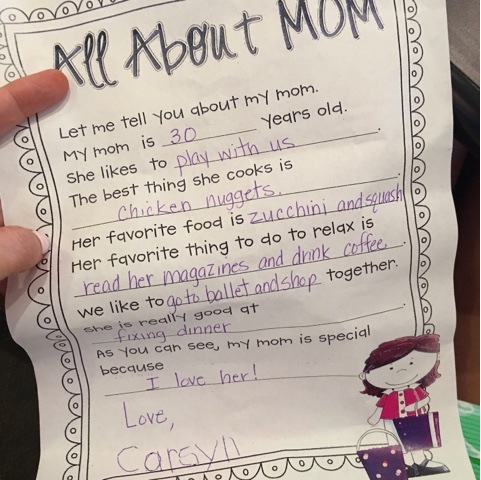 All About MOM
Let me tell you about my mom.
My mom is 30 years old.
She likes to play with us.
The best thing she cooks is
chicken nuggets.
Her favorite food is zucchini and squash
Her favorite thing to do to relax is
read her magazines and drink coffee.
We like to go to ballet and shop together.
She is really good at
fixing dinner.
As you can see, my mom is special
because
I love her!
Love,
Carsyn